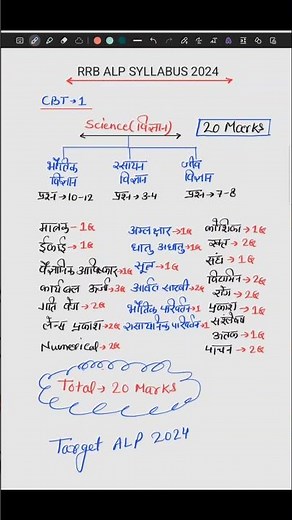 RRB ALP SYLLABUS 2024
CBT→1
Science(विज्ञान)
20 Marks
भौतिक विज्ञान
प्रश्न→10-12
रसायन विज्ञान
प्रश्न→3-4
जीव विज्ञान
प्रश्न→7-8
मात्रक-1Q
ईकाई→1Q
वैज्ञानिक आविष्कार→1Q
कार्य बल ऊर्जा→3Q
गति वेग→2Q
लेन्स प्रकाश→2Q
Numerical→2Q
अम्ल क्षार→1Q
धातु अधातु→1Q
सूत्र→1Q
आवर्त सारणी→2Q
भौतिक परिवर्तन→1
रासायनिक परिवर्तन→1
कोशिका→1Q
रक्त→2Q
संघ→1Q
विटामिन→2Q
रोग→2Q
प्रकाश संश्लेषण→1Q
उतक→1Q
पाचन→2Q
Total→20 Marks
Target ALP 2024